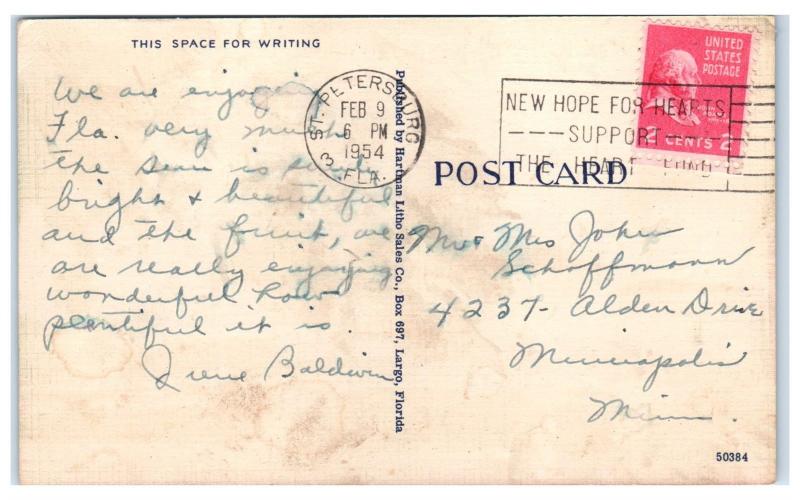 THIS SPACE FOR WRITING
We are enjoying
Fla. very much
the sun is
bright & beautiful
and the fruit, we
are really enjoying
wonderful how
plentiful it is.
Irene Baldwin
Published by Hartman Litho Sales Co., Box 697, Largo, Florida
ST. PETERSBURG
3 FLA.
FEB 9
6 PM
1954
NEW HOPE FOR HEARTS
SUPPORT
THE HEART FUND
UNITED
STATES
POSTAGE
2 CENTS 2
POST CARD
Mr & Mrs John
Schoffmann
4237- Alden Drive
Minneapolis
Minn.
50384